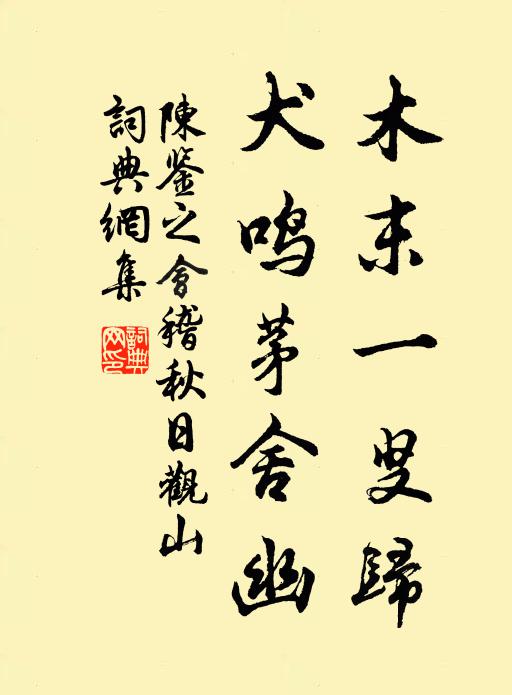 木末一叟歸
犬鳴茅舍幽
陳鉴之會稽秋日觀山
詞典網集
詞典网印